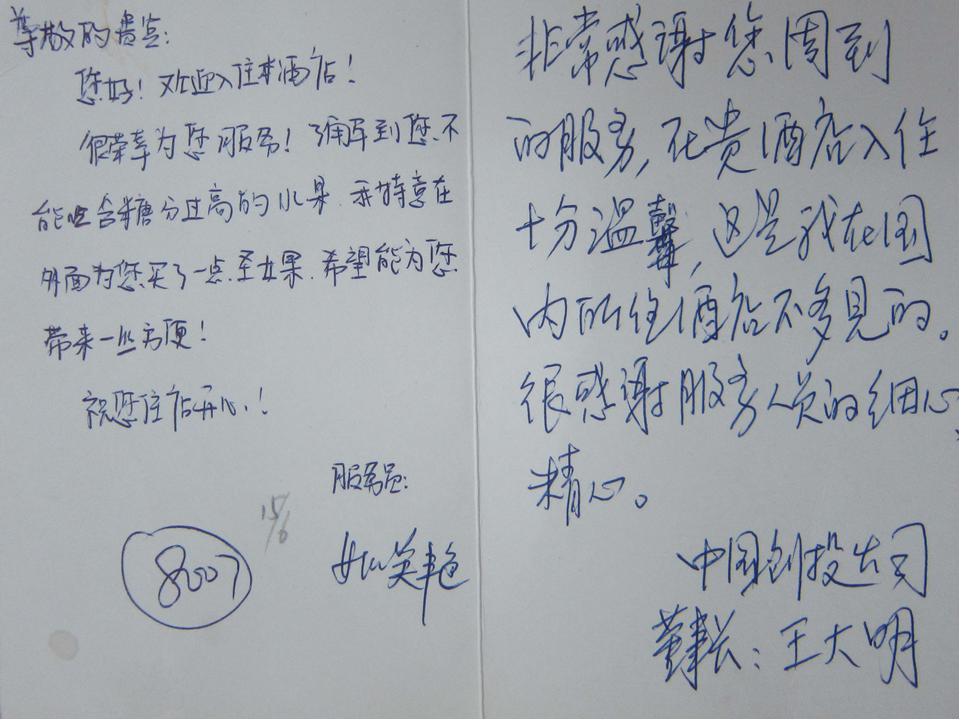 尊敬的贵宾：
您好！欢迎入住本酒店！
很荣幸为您服务！了解到您不
能吃含糖分过高的水果，我特意在
外面为您买了一点圣女果，希望能为您
带来一些方便！
祝您住店开心！
服务员：
15/6
8007
非常感谢您周到
的服务，在贵酒店入住
十分温馨，这是我在国
内所住酒店不多见的。
很感谢服务人员的细心、
精心。
中国创投公司
董事长：王大明